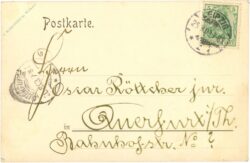 Postkarte.
Herrn
Oscar Röttcher jur.
in Querfurt i/Th.
Bahnhofstr. No 6.